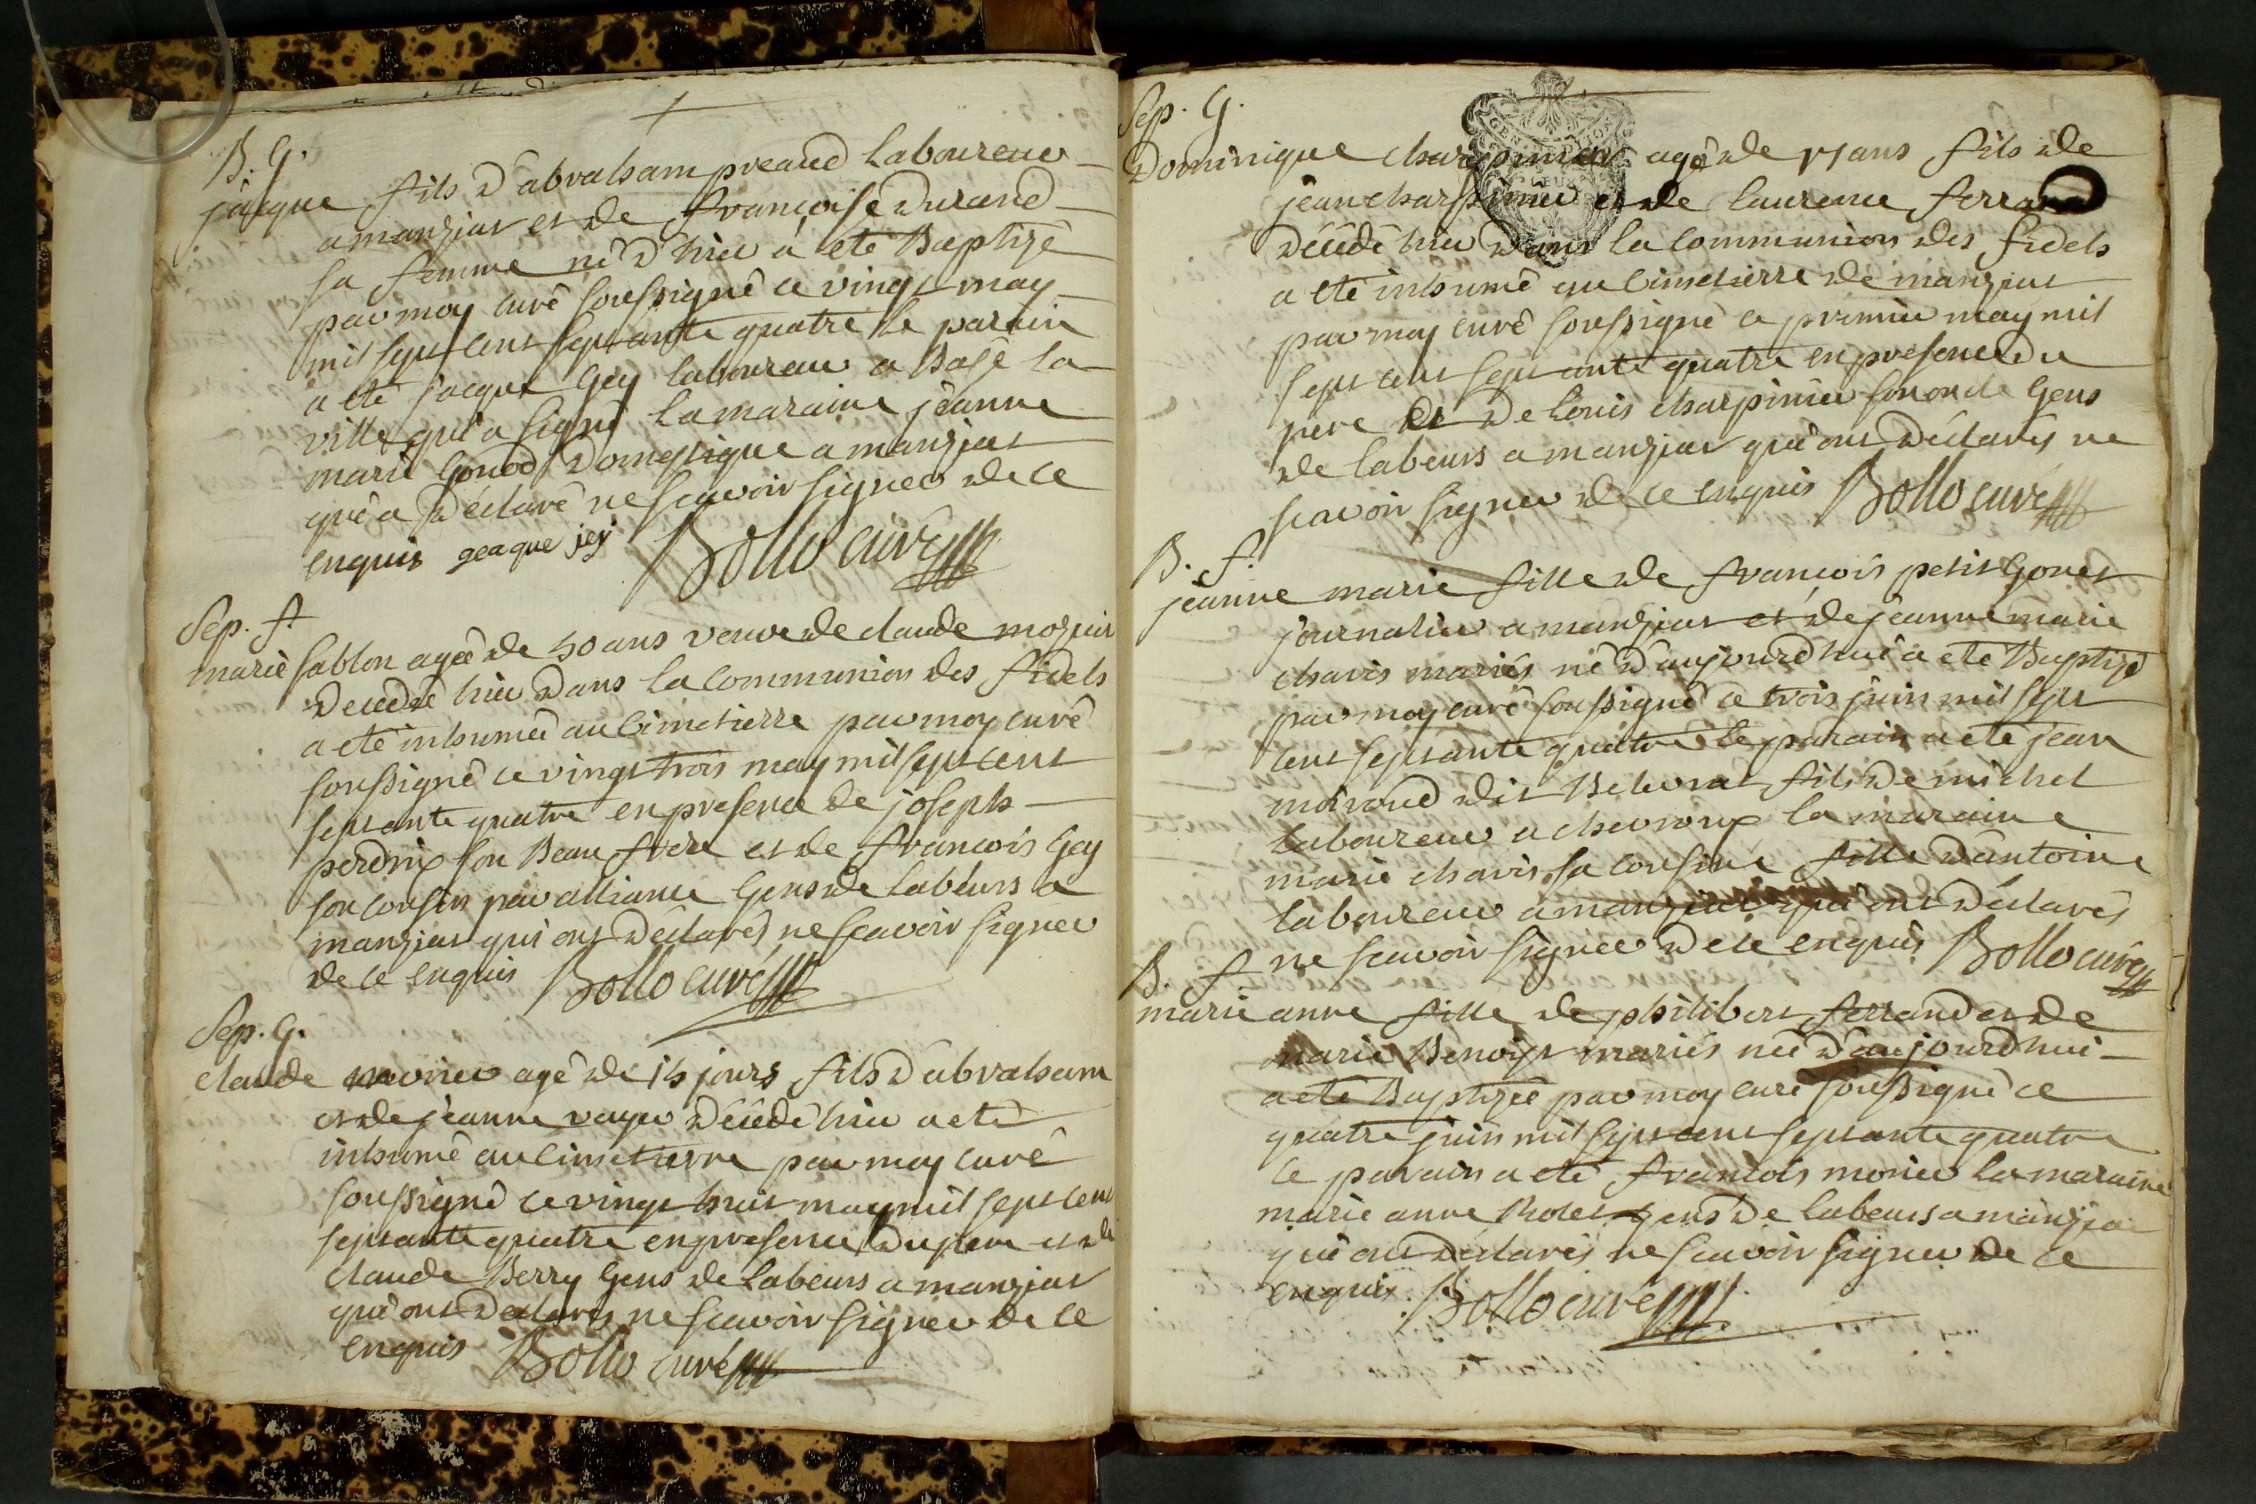 B. G.
jacque fils d'abraham preaud laboureur
a manziat et de françoise Durand
sa femme né d'hier a eté Baptizé
par moy curé soussigné ce vingt may
mil sept cent septante quatre le parain
a eté jacque Gey laboureur a Basé la
ville qui a signé la maraine jeanne
marie Gonod Domestique a manziat
qui a déclaré ne scavoir signer de ce
enquis geaque jey Bollo curé
Sep. f.
marie sablon agée de 50 ans veuve de claude moziat
decedée hier dans la communion des fidels
a eté inhumée au Cimetierre par moy curé
soussigné ce vingt trois may mil sept cent
septante quatre en presence de joseph
perdrix son Beau frere et de francois Gey
son cousin par alliance Gens de labeurs a
manziat qui ont déclarés ne scavoir signer
de ce enquis Bollo curé
Sep. G.
claude morier agé de 15 jours fils d'abraham
et de jeanne decedé hier a eté
inhumé au Cimetierre par moy curé
soussigné ce vingt huit may mil sept cent
septante quatre en presence du pere et de
claude Berry Gens de labeurs a manziat
qui ont declarés ne scavoir signer de ce
enquis Bollo curé
Sep. G.
Dominique charpinier agé de ans fils de
jean charpinier et de laurence ferrand
décédé hier dans la communion des fidels
a eté inhumé au Cimetierre de manziat
par moy curé soussigné ce premier may mil
sept cent septante quatre en presence du
pere et de Louis charpinier son oncle Gens
de labeurs a manziat qui ont déclarés ne
scavoir signer de ce enquis Bollo curé
B. f.
jeanne marie fille de francois petit Gonet
journalier a manziat et de jeanne marie
chavis mariés né d'aujourd'hui a eté Baptizé
par moy curé soussigné ce trois juin mil sept
cent septante quatre le parain a eté jean
dit fils de michel
laboureur a chevroux la maraine
marie chavis sa cousine fille d'antoine
laboureur a manziat qui ont déclarés
ne scavoir signer de ce enquis Bollo curé
B. f.
marie anne fille de philibert ferrand et de
marie Benoist mariés née d'aujourd'hui
a eté Baptizée par moy curé soussigné ce
quatre juin mil sept cent septante quatre
le parain a eté francois morier la maraine
marie anne Gens de labeurs a manzia
qui ont déclarés ne scavoir signer de ce
enquis Bollo curé